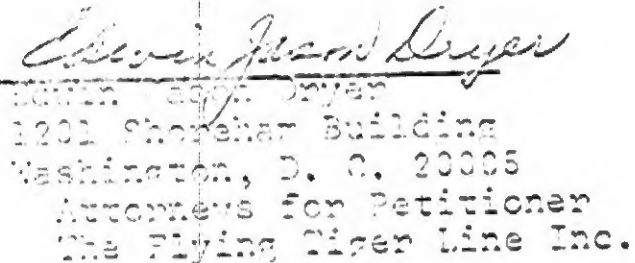 Edwin Jason Dryer
Edwin Jason Dryer
1201 Shoreham Building
Washington, D. C. 20005
Attorneys for Petitioner
The Flying Tiger Line Inc.